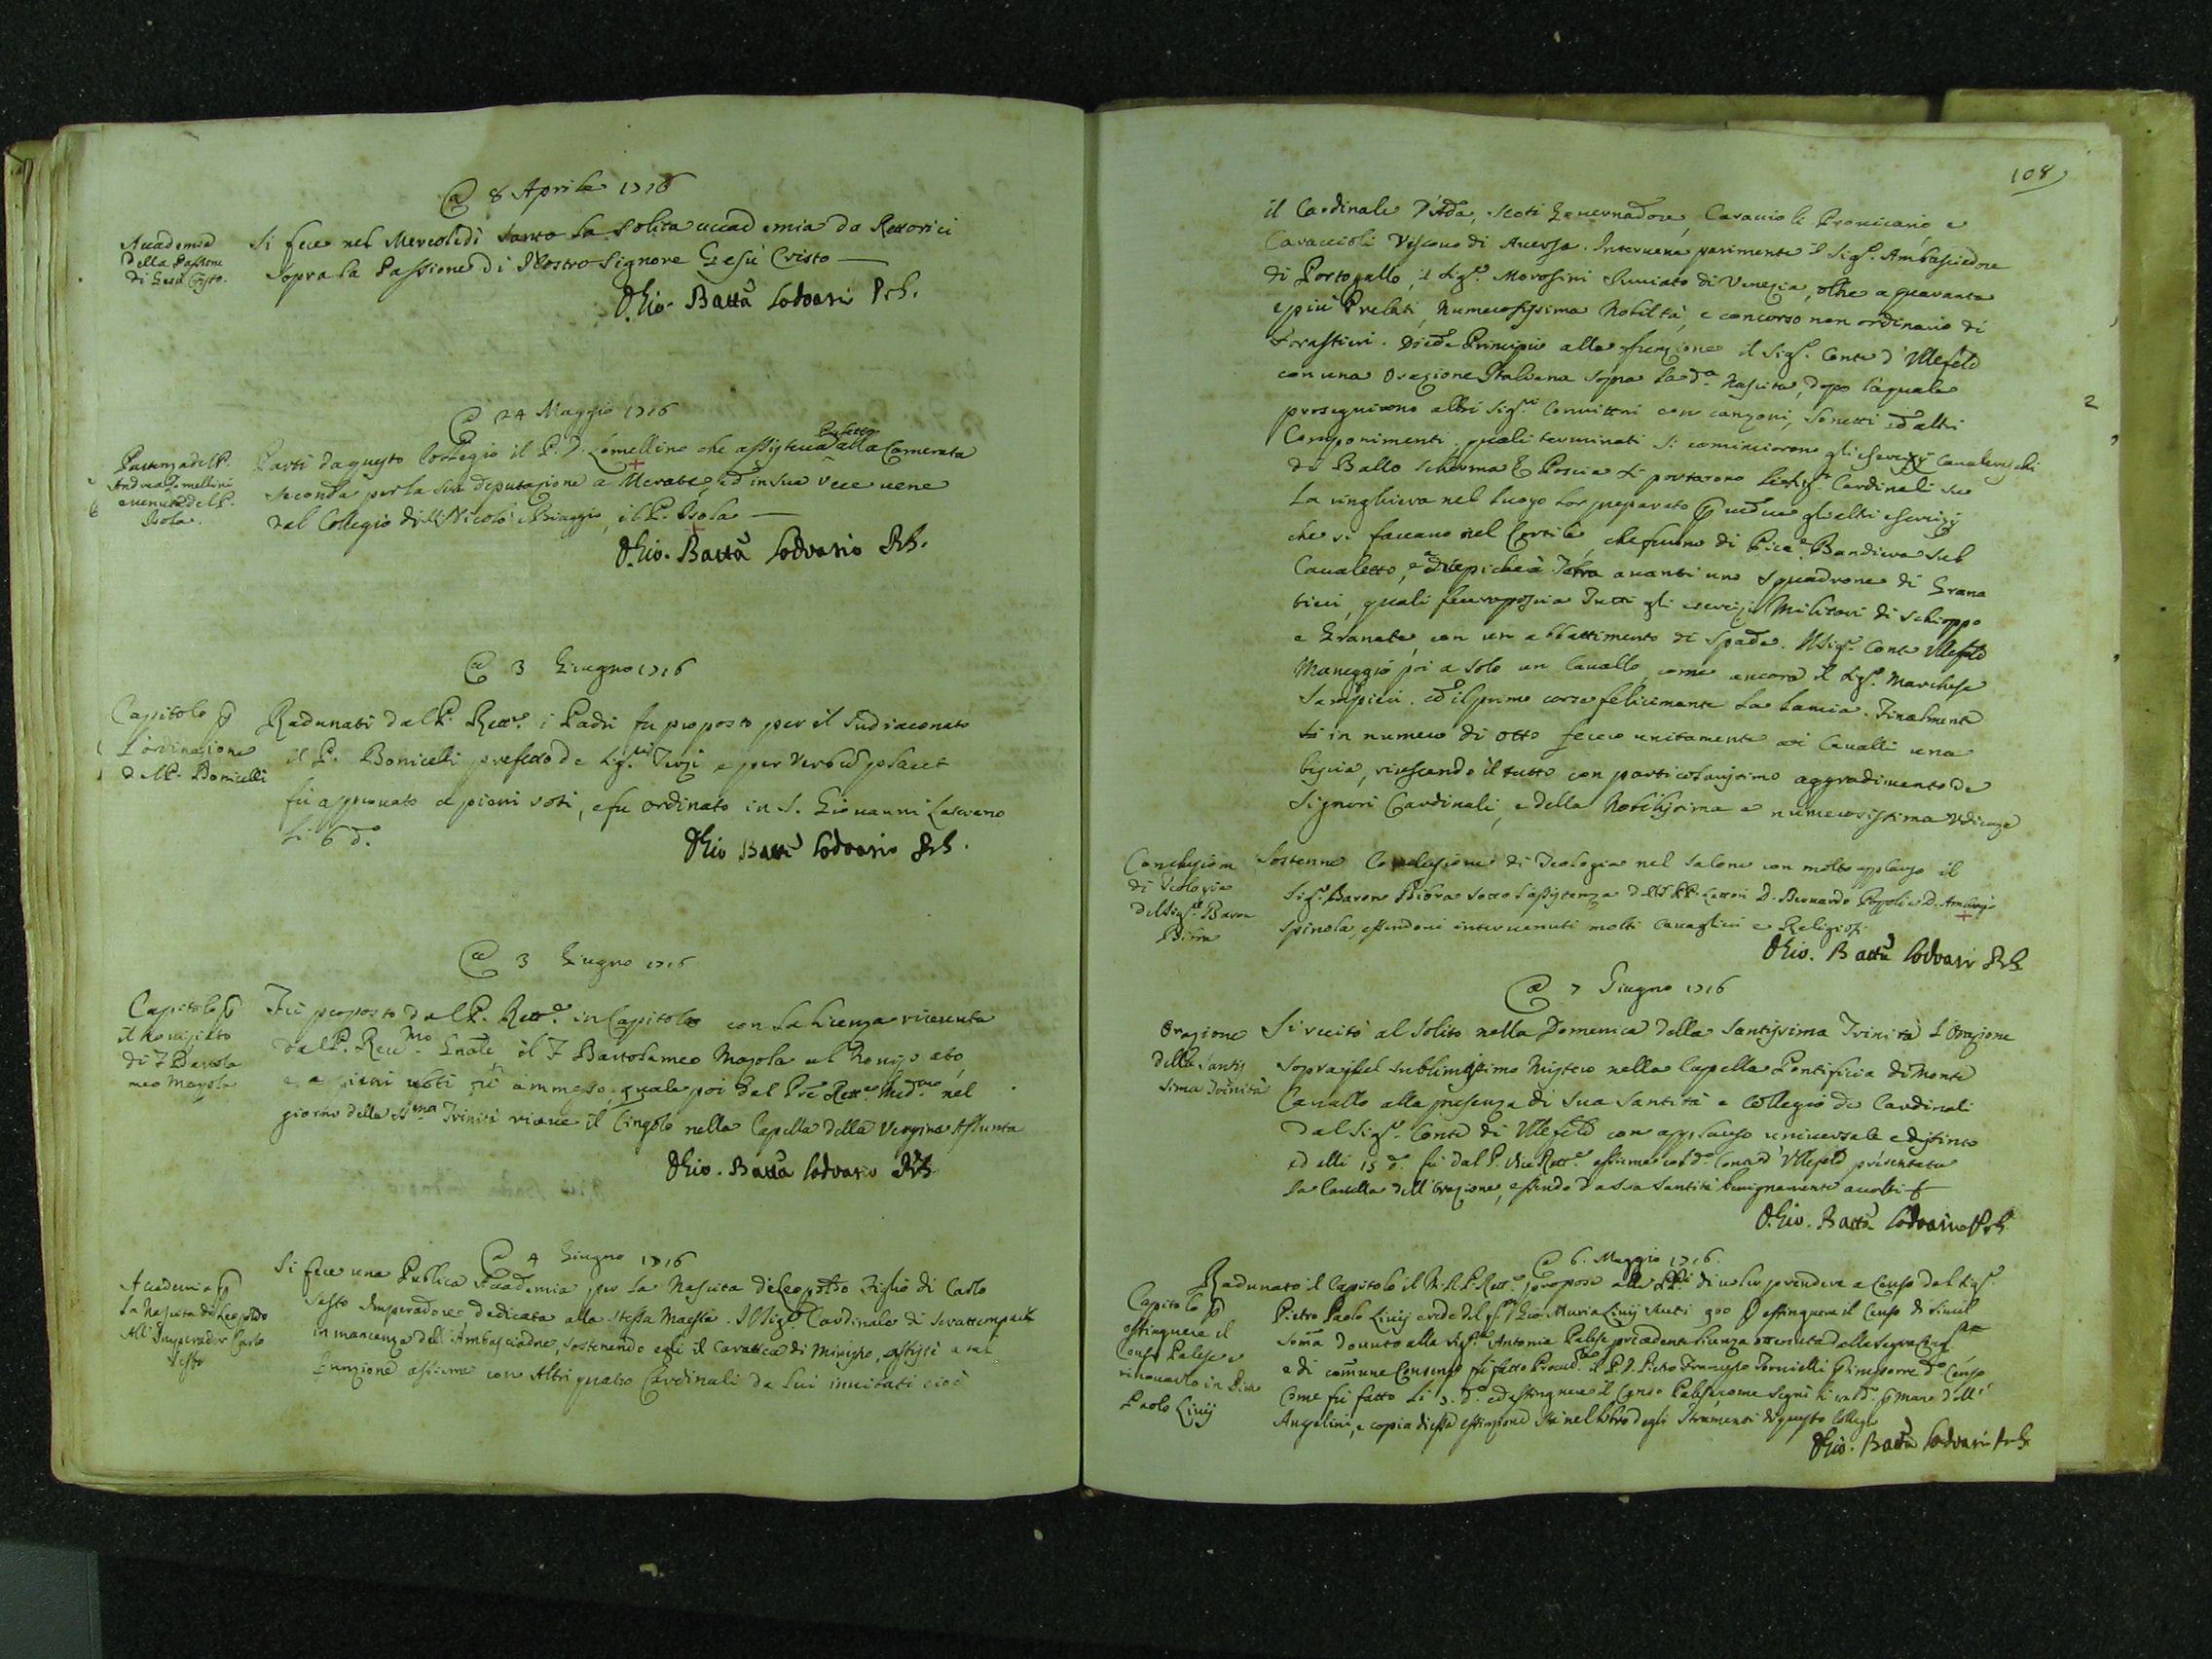 @ 8 Aprile 1716
Accademia
della Passione
di Gesù Cristo.
Si fece nel Mercoledì Santo la solita accademia da Rettorici
sopra la Passione di Nostro Signore Gesù Cristo
D. Gio. Batta Lodvasi
@ 24 Maggio 1716
Partenza del P.
Andrea Lomellini
e venuta del P.
Isola.
Partì da questo Collegio il P. D. Lomellino che assisteva Prefetto alla Camerata
seconda per la sua deputazione a Merate, ed in sua vece vene
dal Collegio di SS. Nicolò e Biaggio, il P. Isola
D. Gio. Batta Lodvasio
@ 3 Giugno 1716
Capitolo p
l'ordinazione
del P. Bonicelli
Radunati dal P. Rett.e i Padri fu proposto per il Sudiaconato
il P. Bonicelli prefetto de Sig.ri Terzi e per verbum placet
fù approuato a pieni voti, e fu ordinato in S. Giouanni Laterano
li 6 d.o
D. Gio Batta Lodvasio
@ 3 Giugno 1716
Capitolo p
il Noviziato
di F Bartola
meo Mazola
Fù proposto dal P. Rett.e in Capitolo con la licenza riceuuta
dal P. Reu.mo Gnale il F Bartolameo Mazola al Nouiziato,
e a pieni uoti fù ammesso, quale poi dal Pre Rett.e Med.mo nel
giorno della SS.ma Trinità riceue il Cingolo nella Capella della Vergine Assunta
D. Gio. Batta Lodvasio
@ 4 Giugno 1716
Accademia p
la Nascita di Leopoldo
All' Imperador Carlo
sesto
Si fece una Publica Accademia per la Nascita di Leopoldo Figlio di Carlo
sesto Imperadore dedicata alla stessa Maestà. Il Sig.r Cardinale di Scrattempach
in mancanza dell' Ambasciadore, sostenendo egli il Carattere di Ministro, assistè a tal
funzione assieme con altri quatro Cardinali da lui inuitati cioè
108
il Cardinale d'Adda, Scoti Gouernadore, Caraccioli Prouicario e
Caraccioli Vescouo di Auersa. Interuene parimente il Sig.r Ambasciadore
di Portogallo, il Sig.r Morosini Inuiato di Venezia, oltre a quaranta
e più Prelati, Numerosissima Nobiltà, e concorso non ordinario di
Forastieri. Diede Principio alla funzione il Sig.r Conte d' Vllefeld
con una Orazione Italiana sopra la d.a Nascita, dopo la quale
proseguirono altri Sig.ri Conuittori con canzoni, sonetti ed altri
Componimenti. quali terminati si cominciorono gli esercizij Caualereschi
di Ballo scherma & Poscia si portarono li Sig.ri Cardinali su
la ringhiera nel luogo lor preparato p uedere gli altri esercizij
che si faceano nel Cortile, che furono di Pica e Bandiera sul
Caualetto, e di picche à Terra auanti uno squadrone di Grana
tieri, quali fecero poscia Tutti gli esercizij Militari di schioppo
e Granate, con un abbattimento di Spade. Il Sig.r Conte Vllefeld
Maneggiò poi a solo un Cauallo, come ancora il Sig.r Marchese
Sampieri. ed il primo corse felicemente la Lancia. Finalmente
in numero di otto fecero unitamente coi Caualli una
biscia, riuscendo il tutto con particolarissimo aggradimento de
Signori Cardinali, e della Nobilissima e numerosissima Vdienza
Conclusioni
di Teologia
del Sig.r Baron
Bibra
Sostenne Conclusioni di Teologia nel salone con molto applauso il
Sig.r Baron Bibra sotto l'assistenza delli PP. Lettori D. Bernardo Popoli e D. Ambrogio
Spinola, essendoui interuenuti molti Cauaglieri e Religiosi
D. Gio. Batta Lodvasi
@ 7 Giugno 1716
Orazione
della Santis
sima Trinità
Si recitò al solito nella Domenica della Santissima Trinità l'Orazione
sopra quel sublimissimo Mistero nella Capella Pontificia di Monte
Cauallo alla presenza di Sua Santità e Collegio de Cardinali
dal Sig.r Conte di Vllefeld con applauso uniuersale e distinto
ed alli 15 d.o fù dal P. Vice Rett.e assieme col d.o Conte d' Vllefeld presentata
la Cartella dell' Orazione, essendo da Sua Santità benignamente accolti
D. Gio. Batta Lodvasio
@ 6. Maggio 1716.
Capitolo p
estinguere il
Censo Palese e
rinouarlo in Pietro
Paolo Liuij
Radunato il Capitolo il M. R. P. Rett.e propose alli PP. di uoler prendere a Censo dal Sig.r
Pietro Paolo Liuij erede del Gio. Maria Liuij scudi 900 p estinguere il Censo di simil
soma douuto alla Sig.ra Antonia Palese, precedente licenza ottenuta dalla
e di comune Consenso fù fatto il P. D. Pietro Francesco Tornielli p imporre d.o Censo
Come fù fatto li 9. d.o ed estinguere il Censo Palese, come seguì li d.o p mano dell'
Angelini, e copia di essa estinzione stà nel libro degli Strumenti di questo Collegio
D. Gio. Batta Lodvasi